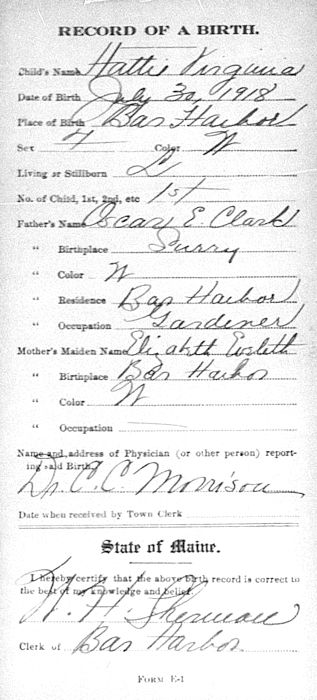 RECORD OF A BIRTH.
Child's Name Hattie Virginia
Date of Birth July 30, 1918
Place of Birth Bar Harbor
Sex F Color W
Living or Stillborn L
No. of Child, 1st, 2nd, etc 1st
Father's Name Oscar E. Clark
" Birthplace Surry
" Color W
" Residence Bar Harbor
" Occupation Gardiner
Mother's Maiden Name Elizabeth
" Birthplace Bar Harbor
" Color W
" Occupation
Name and address of Physician (or other person) report-
ing said Birth?
Dr. C. C. Morrison
Date when received by Town Clerk
State of Maine.
I hereby certify that the above birth record is correct to
the best of my knowledge and belief.
W. H. Sherman
Clerk of Bar Harbor
FORM E-1